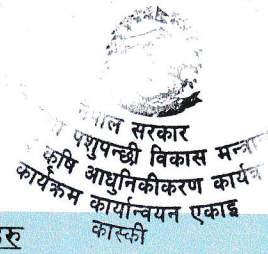 नेपाल सरकार
पशुपन्छी विकास मन्त्रा
कृषि आधुनिकीकरण कार्यक्र
कार्यक्रम कार्यान्वयन एकाइ
कास्की